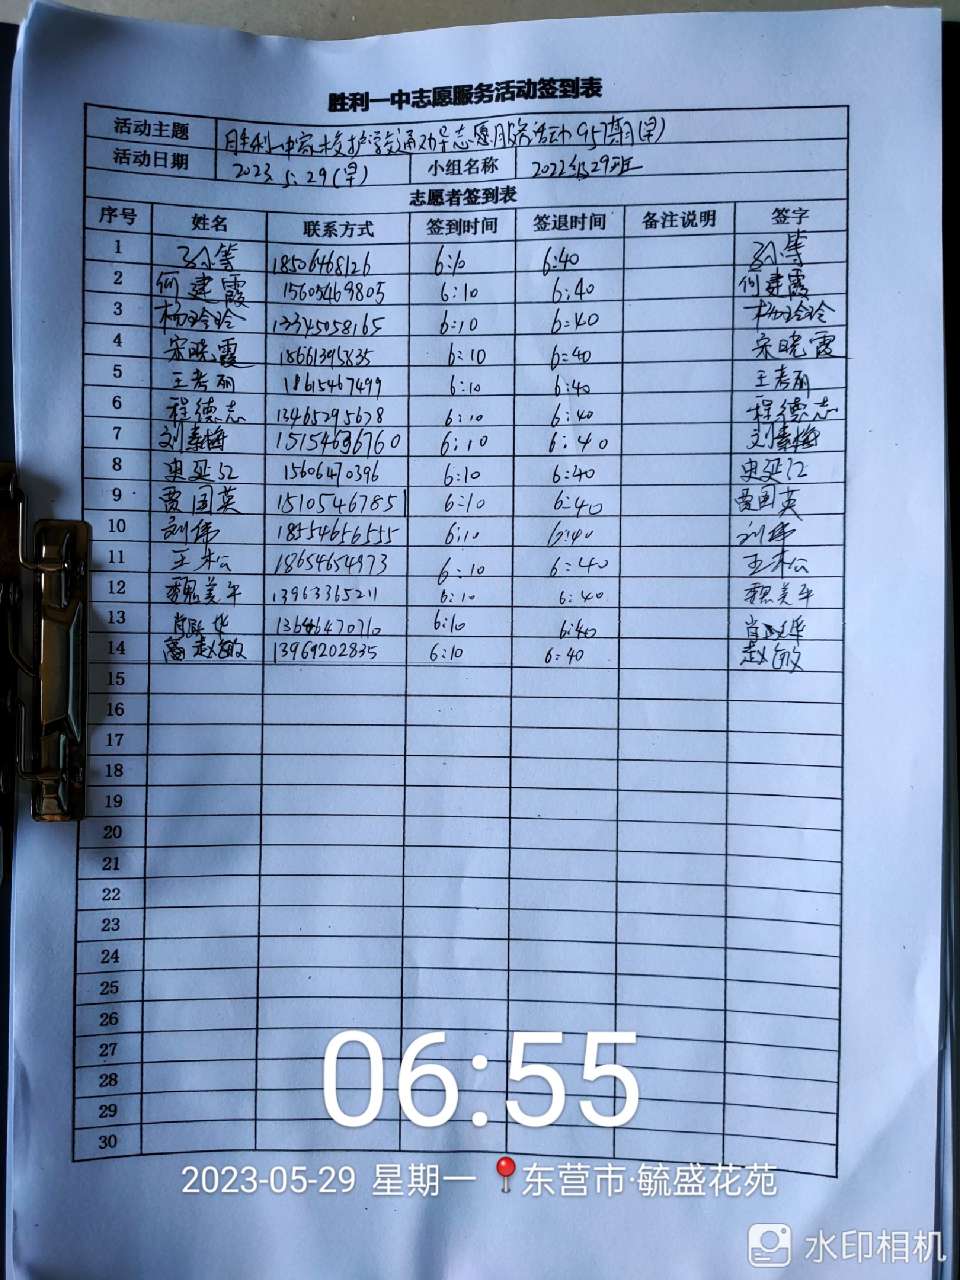 胜利一中志愿服务活动签到表
活动主题 胜利一中家校护学交通劝导志愿服务活动957期(早)
活动日期 2023.5.29(早) 小组名称 2022级29班
志愿者签到表
序号 姓名 联系方式 签到时间 签退时间 备注说明 签字
1 孙等 18506468126 6:10 6:40 孙等
2 何建霞 15605469805 6:10 6:40 何建霞
3 杨玲玲 13345058165 6:10 6:40 杨玲玲
4 宋晓霞 18661395835 6:10 6:40 宋晓霞
5 王考丽 18615467499 6:10 6:40 王考丽
6 程德志 13465295678 6:10 6:40 程德志
7 刘素梅 15154636760 6:10 6:40 刘素梅
8 史延江 15606470396 6:10 6:40 史延江
9 贾国英 15105467851 6:10 6:40 贾国英
10 刘伟 18554656555 6:10 6:40 刘伟
11 王松 18654654973 6:10 6:40 王松
12 魏美平 13963365211 6:10 6:40 魏美平
13 肖 华 13646470710 6:10 6:40 肖 华
14 赵敏 13969202835 6:10 6:40 赵敏
15
16
17
18
19
20
21
22
23
24
25
26
27
28
29
30
06:55
2023-05-29 星期一 东营市·毓盛花苑
水印相机